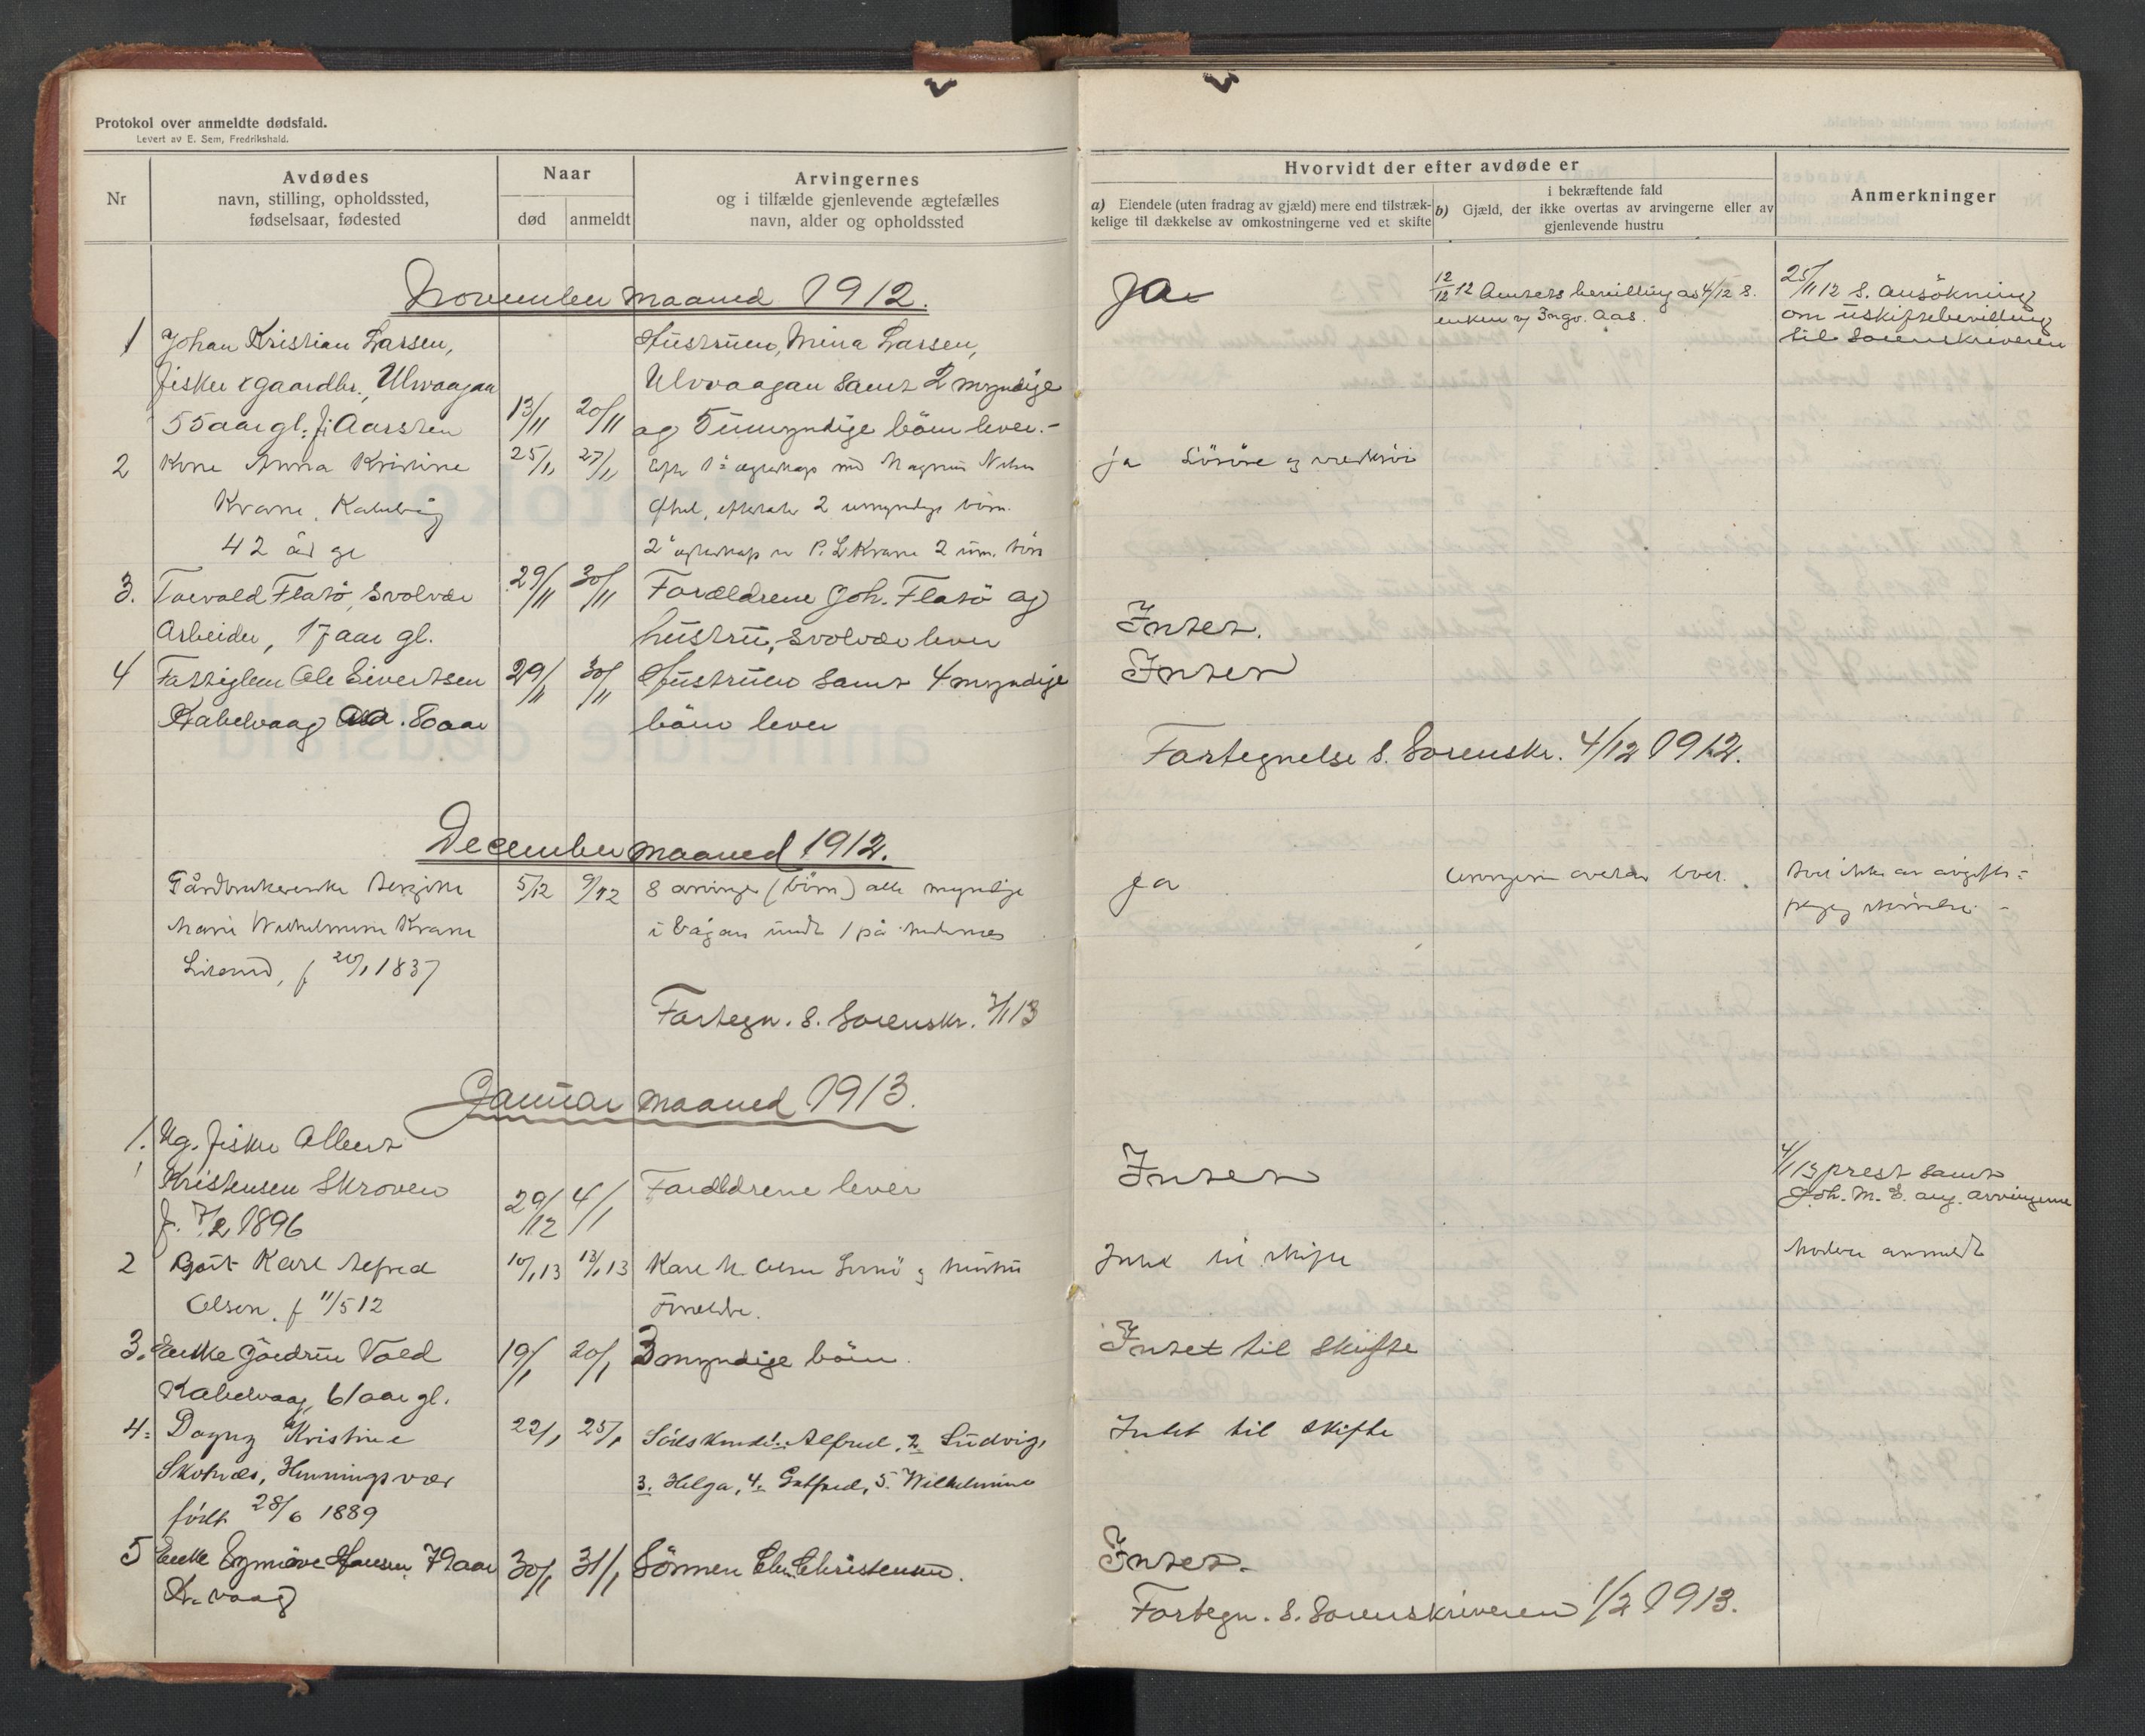 Protokol over anmeldte dødsfald.
Levert av E. Sem, Fredrikshald.
Nr
Avdødes
navn, stilling, opholdssted,
fødselsaar, fødested
Naar
død
anmeldt
Arvingernes
og i tilfælde gjenlevende ægtefælles
navn, alder og opholdssted
November maaned 1912.
1 Johan Kristian Larsen,
fisker & gaardbr., Ulvaagan
55 aar gl. f. Aarsten
13/11 20/11
Hustruen, Mina Larsen,
Ulvvaagan samt 2 myndige
og 5 umyndige börn lever.-
2 Kone Anna Kristine
Krane, Kabelvåg
42 år gl
25/11 27/11
Efter 1ste ægteskap med Magnus
efterlater 2 umyndige börn.
2det ægteskap m P. L Krane 2 um. börn
3. Torvald Flatö, Svolvær
Arbeider, 17 aar gl.
29/11 30/11
Forældrene Joh. Flatö og
hustru, Svolvær lever
4 Fattiglem Ole Sivertsen
Kabelvaag 80 aar
29/11 30/11
Hustruen samt 4 myndige
börn lever
December maaned 1912.
Gårdbrukerenke
Marie Wilhelmine Krane
f 20/1 1837
5/12 9/12
8 arvinger (börn) alle myndige
i Vågan undt 1 på
Fortegn. s. Sorenskr. 2/1 13
Januar maaned 1913.
1. Ug. fisker Albert
Kristensen Skroven
f. 7/2 1896
29/12 4/1
Forældrene lever
2 Gut Karl Alfred
Olsen. f 11/5 12
10/1 13 13/1 13
Kare M. Olsen og hustru
3. Enke Gördrun Vold
Kabelvaag, 61 aar gl.
19/1 20/1
3 myndige börn.
4. Dagny Kristine
Skotnæs, Henningsvær
födt 28/6 1889
22/1 25/1
Södskende: 1. Alfred, 2. Ludvig,
3. Helga, 4. Gotfred, 5. Wilhelmine
5 Enke Synnöve Hansen, 79 aar
K.vaag
30/1 31/1
Sönnen Chr. Christensen.
Hvorvidt der efter avdøde er
a) Eiendele (uten fradrag av gjæld) mere end tilstræk-
kelige til dækkelse av omkostningerne ved et skifte
i bekræftende fald
b) Gjæld, der ikke overtas av arvingerne eller av
gjenlevende hustru
Anmerkninger
Ja
12/12 12 Amtets bevilling av 4/12 s.
enken v/ Ingv. Aas.
25/11 12 s. ansökning
om uskiftebevilling
til Sorenskriveren
Ja Lösöre og
Intet.
Intet
Fortegnelse s. Sorenskr. 4/12 1912.
Ja
Arvingerne overtar boet.
Intet
4/1 13 prest samt
Joh. M. E. ang. arvingerne
Intet til skifte
Moderen anmeldt
Intet til skifte
Intet til skifte
Intet.
Fortegn. s. Sorenskriveren 1/2 1913.